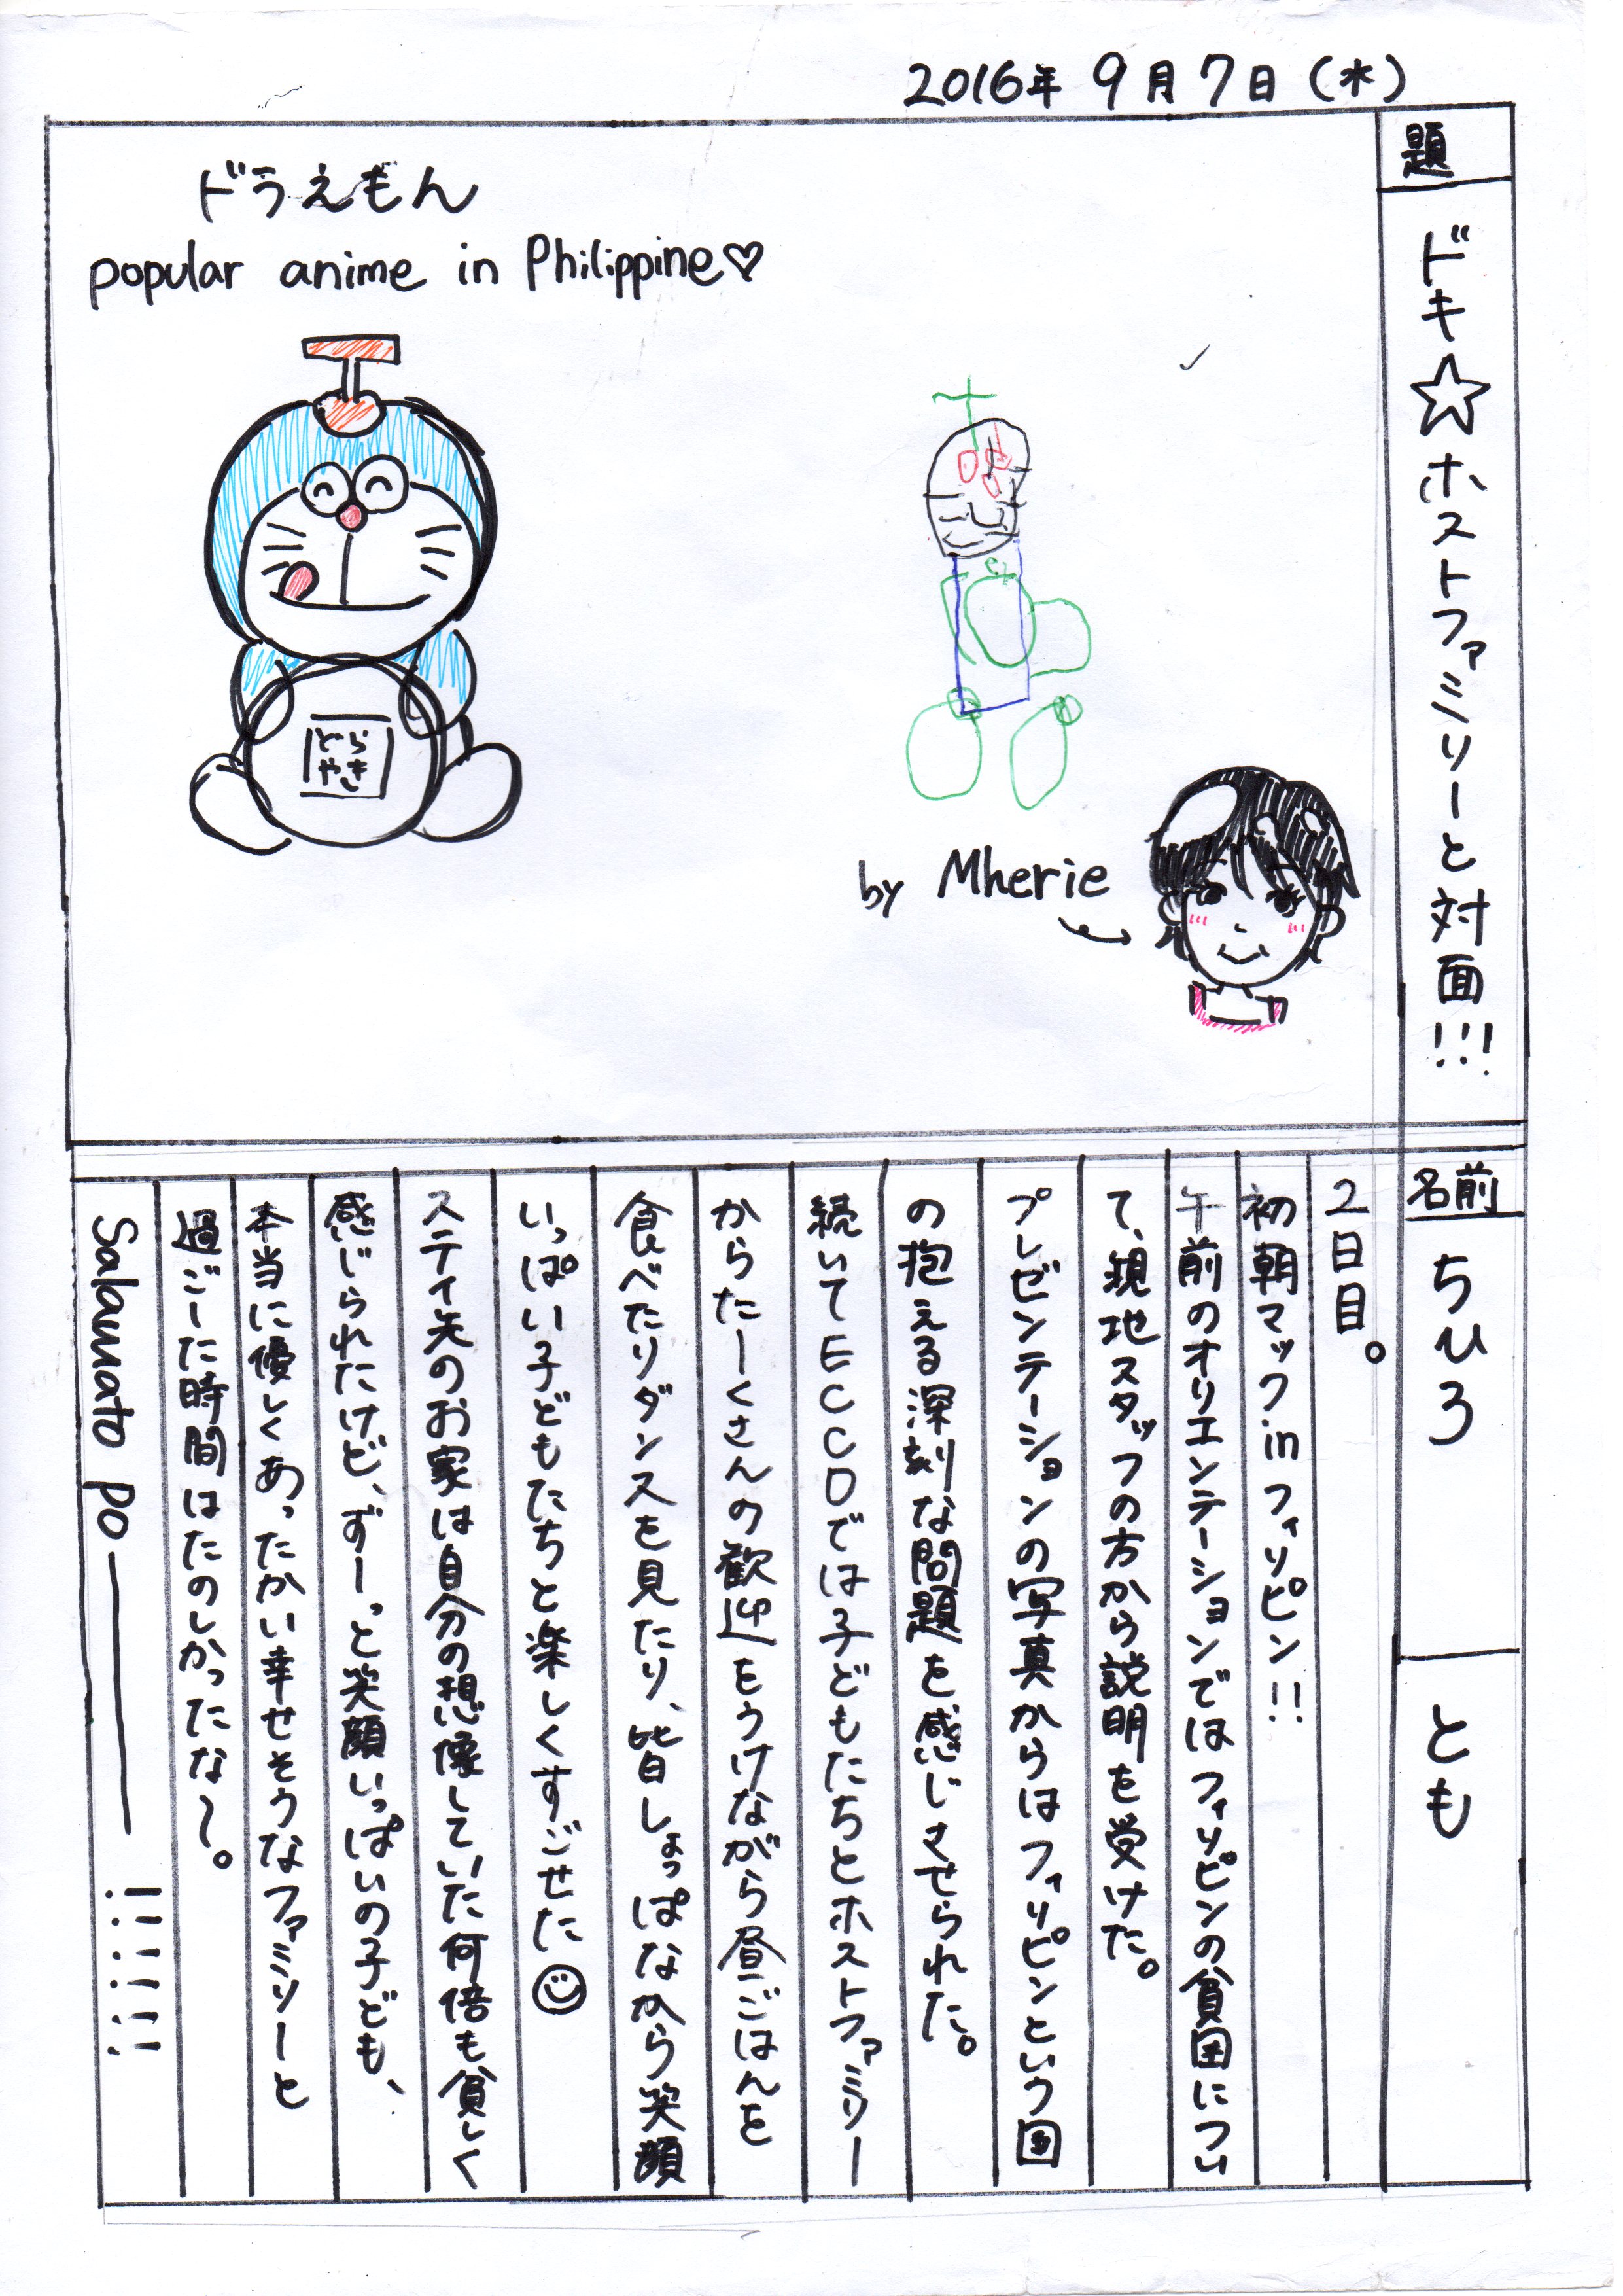 2016年 9月7日(水)
題
ドキ☆ホストファミリーと対面!!!
ドラえもん
popular anime in Philippine♡
どら
やき
by Mherie
名前
ちひろ
とも
2日目。
初朝マック in フィリピン!!
午前のオリエンテーションではフィリピンの貧困につい
て、現地スタッフの方から説明を受けた。
プレゼンテーションの写真からはフィリピンという国
の抱える深刻な問題を感じさせられた。
続いてECCDでは子どもたちとホストファミリー
からたーくさんの歓迎をうけながら昼ごはんを
食べたりダンスを見たり、皆しょっぱなから笑顔
いっぱい子どもたちと楽しくすごせた☺
ステイ先のお家は自分の想像していた何倍も貧しく
感じられたけど、ずーっと笑顔いっぱいの子ども、
本当に優しくあったかい幸せそうなファミリーと
過ごーた時間はたのしかったな〜。
Salamato po―――!!!!!!